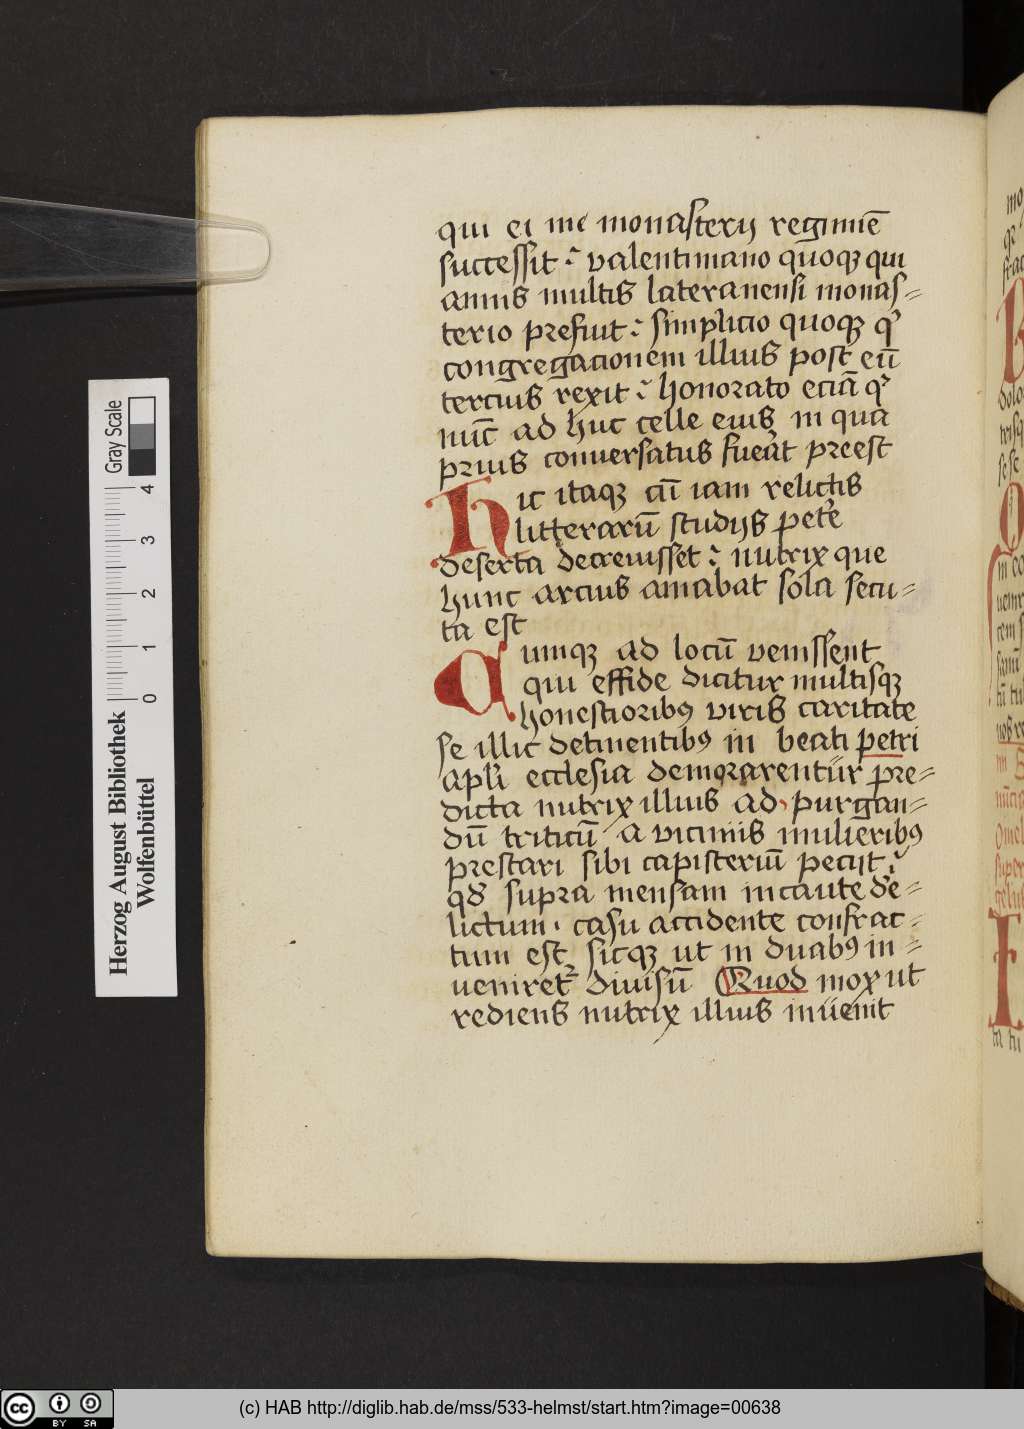 qui ei in monasterij regimīe
successit · valentiniano quoqꝫ qui
annis multis lateranensi monas=
terio prefuit · simplicio quoqꝫ qͥ
congregacionem illius post eū
tercius rexit · honorato eciā qͥ
nūc ad huc celle eius in qua
prius conuersatus fuēat preest
Hic itaqꝫ cū iam relictis
litterarū studijs petēe
deserta decreuisset · nutrix que
hunc arcius amabat sola secu=
ta est
Cumqꝫ ad locū venissent
qui effide dicitur multisqꝫ
honestioribꝰ viris caritate
se illic detinentibꝰ in beati petri
apl̄i ecclesia demorarentur pre=
dicta nutrix illius ad purgan=
dū triticū a vicinis mulieribꝰ
prestari sibi capisterium pecijt ·
qd̄ supra mensam incaute de=
lictum · casu accidente confrac=
tum est sicqꝫ ut in duabꝰ in=
ueniret᷑ diuisū Quod mox ut
rediens nutrix illius inuenit
Gray Scale
4
3
2
1
0
Herzog August Bibliothek
Wolfenbüttel
(c) HAB http://diglib.hab.de/mss/533-helmst/start.htm?image=00638
cc BY SA